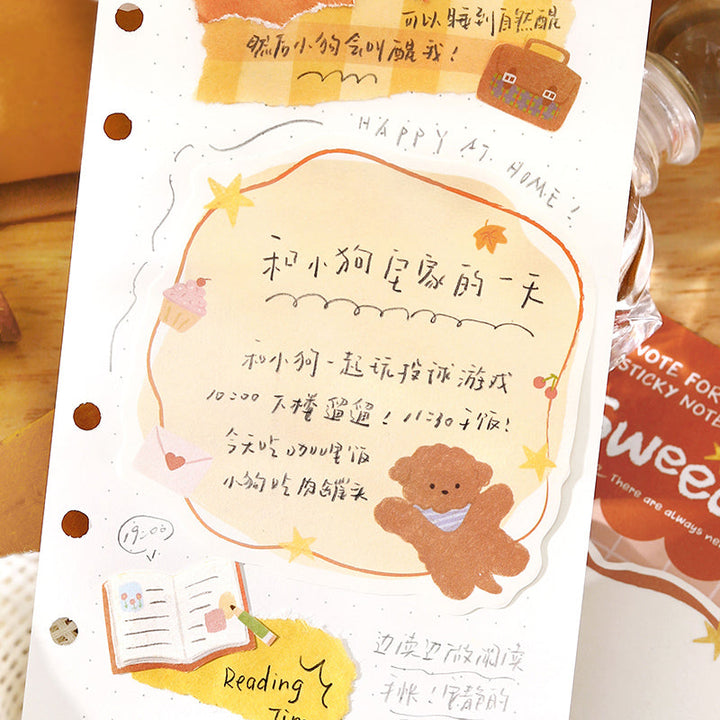 可以睡到自然醒
然后小狗会叫醒我！
HAPPY AT HOME!
和小狗宅家的一天
和小狗一起玩投球游戏
10:00 下楼遛遛！11:30 干饭！
今天吃咖喱饭
小狗吃肉罐头
19:00
Reading
边读边做阅读
手帐！安静的
NOTE FOR
STICKY NOTE
Sweet
There are always